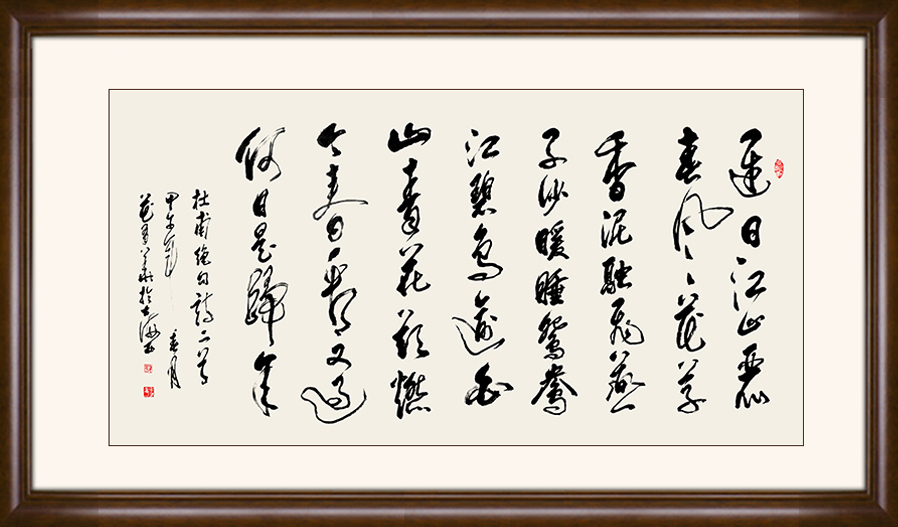 遲日江山麗
春風花草
香泥融飛燕
子沙暖睡鴛鴦
江碧鳥逾白
山青花欲燃
今春看又過
何日是歸年
杜甫絕句詩二首
甲午年春月
於上海